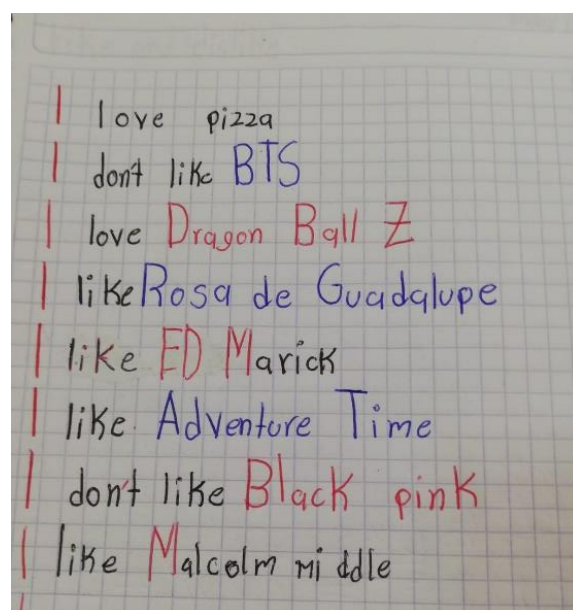 I love pizza
I don't like BTS
I love Dragon Ball Z
I like Rosa de Guadalupe
I like ED Marick
I like Adventure Time
I don't like Black pink
I like Malcolm middle